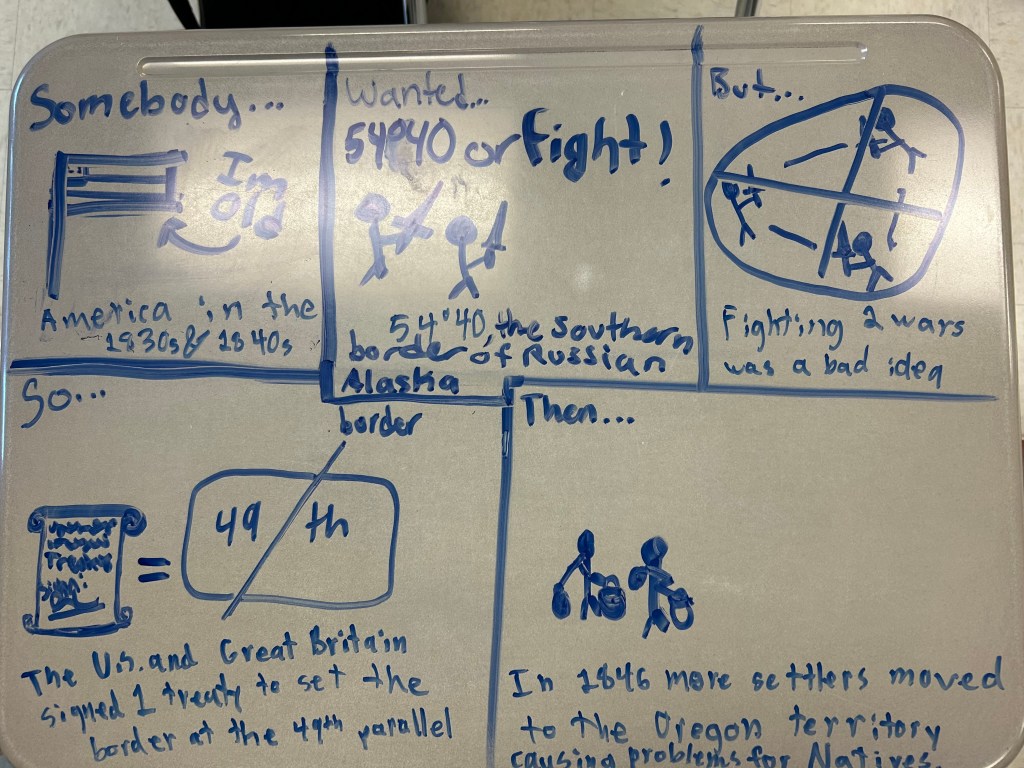 Somebody...
Im
Old
America in the
1830s & 1840s
Wanted...
54°40 or Fight!
54°40, the Southern
border of Russian
Alaska
But...
Fighting 2 wars
was a bad idea
So...
border
49 th
Treaty
=
The U.S. and Great Britain
signed 1 treaty to set the
border at the 49th parallel
Then...
In 1846 more settlers moved
to the Oregon territory
causing problems for Natives.